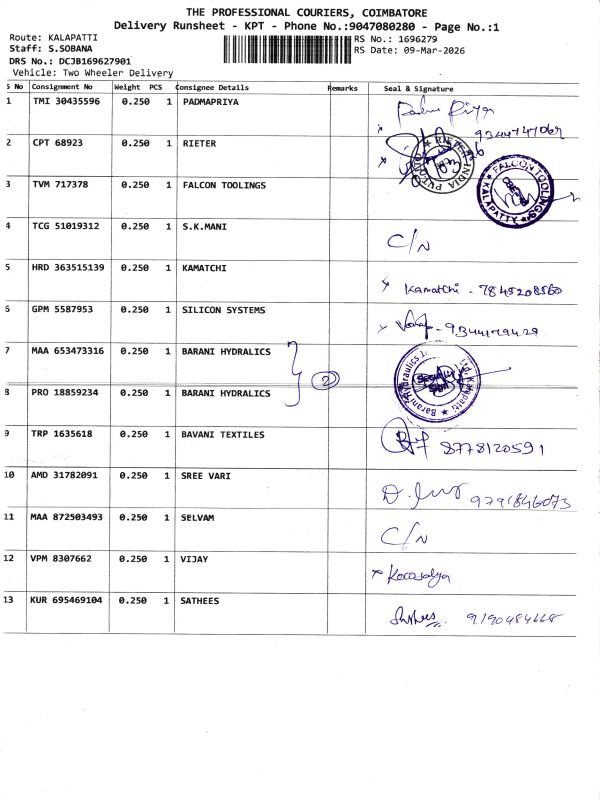 THE PROFESSIONAL COURIERS, COIMBATORE
Delivery Runsheet - KPT - Phone No.:9047080280 - Page No.:1
Route: KALAPATTI
RS No.: 1696279
Staff: S.SOBANA
RS Date: 09-Mar-2026
DRS No.: DCJB169627901
Vehicle: Two Wheeler Delivery
S No Consignment No Weight PCS Consignee Details Remarks Seal & Signature
1 TMI 30435596 0.250 1 PADMAPRIYA Padma Priya
2 CPT 68923 0.250 1 RIETER RIETER INDIA
3 TVM 717378 0.250 1 FALCON TOOLINGS FALCON TOOLINGS KALAPATTY
4 TCG 51019312 0.250 1 S.K.MANI C/N
5 HRD 363515139 0.250 1 KAMATCHI Kamatchi - 7845208560
6 GPM 5587953 0.250 1 SILICON SYSTEMS
7 MAA 653473316 0.250 1 BARANI HYDRALICS
2 Barani Hydraulics Ltd, Kalapatti
8 PRO 18859234 0.250 1 BARANI HYDRALICS
9 TRP 1635618 0.250 1 BAVANI TEXTILES 8778120591
10 AMD 31782091 0.250 1 SREE VARI
11 MAA 872503493 0.250 1 SELVAM C/N
12 VPM 8307662 0.250 1 VIJAY
13 KUR 695469104 0.250 1 SATHEES Sathees